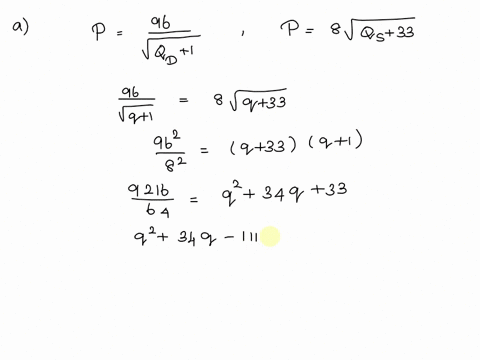 a) P = 96/√(Q_D+1) , P = 8√(Q_S+33)
96/√(q+1) = 8√(q+33)
96²/8² = (q+33) (q+1)
9216/64 = q² + 34q + 33
q² + 34q - 111